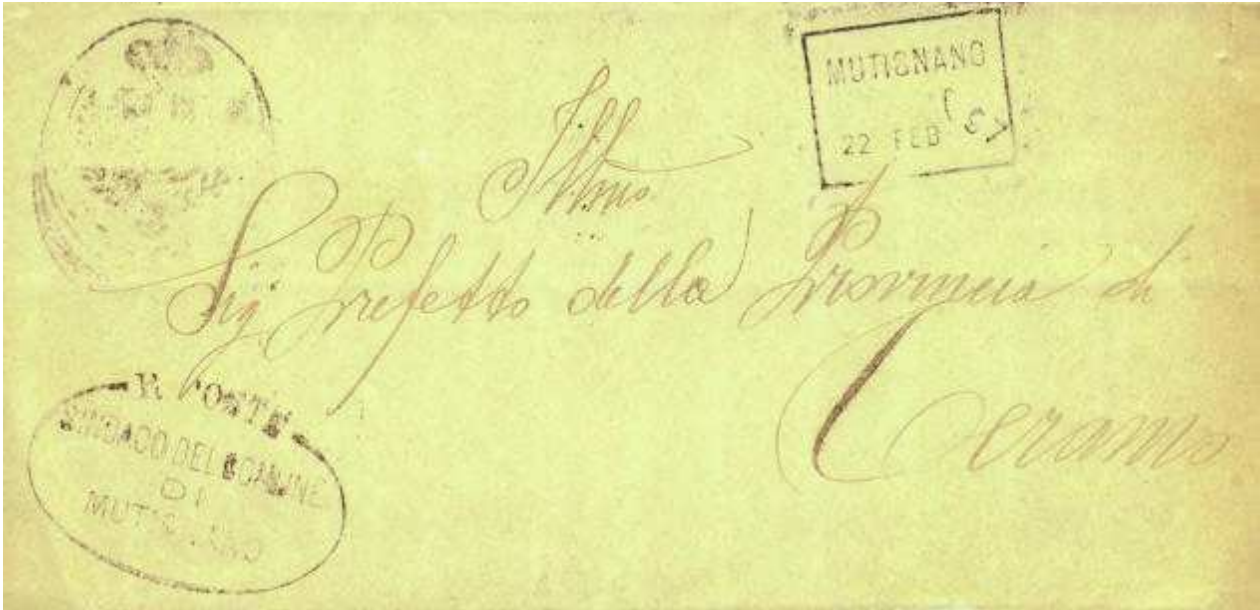 MUTIGNANO
22 FEB
Illmo
Sig Prefetto della Provincia di
Teramo
R. POSTE
SINDACO DEL COMUNE
DI
MUTIGNANO